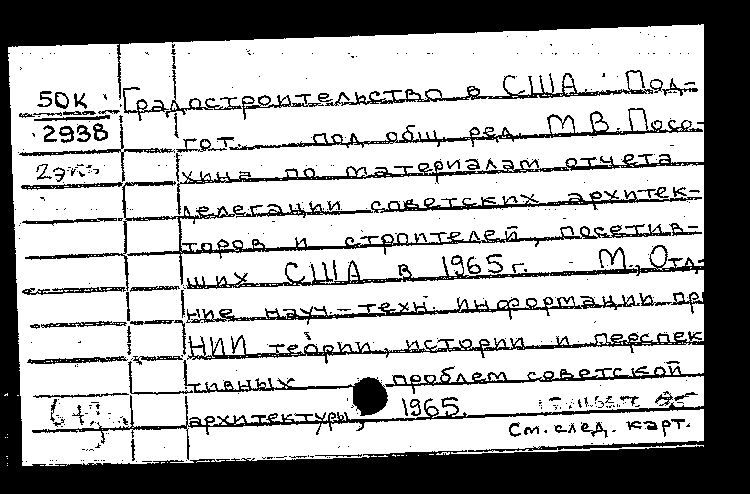 50К Градостроительство в США. Под-
2938 гот. под общ. ред. М.В. Посо-
2экз хина по материалам отчета
делегации советских архитек-
торов и строителей, посетив-
ших США в 1965г. М., Отд-
ние науч.-техн. информации при
НИИ теории, истории и перспек
тивных проблем советской
архитектуры, 1965.
См. след. карт.